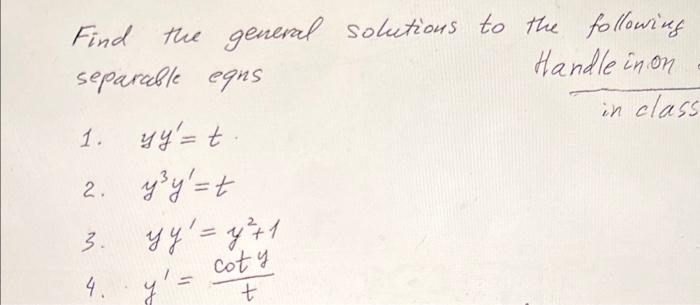 Find the general solutions to the following
separable eqns
Handle in on
in class
1. yy' = t
2. y³y' = t
3. yy' = y²+1
4. y' = cot y / t